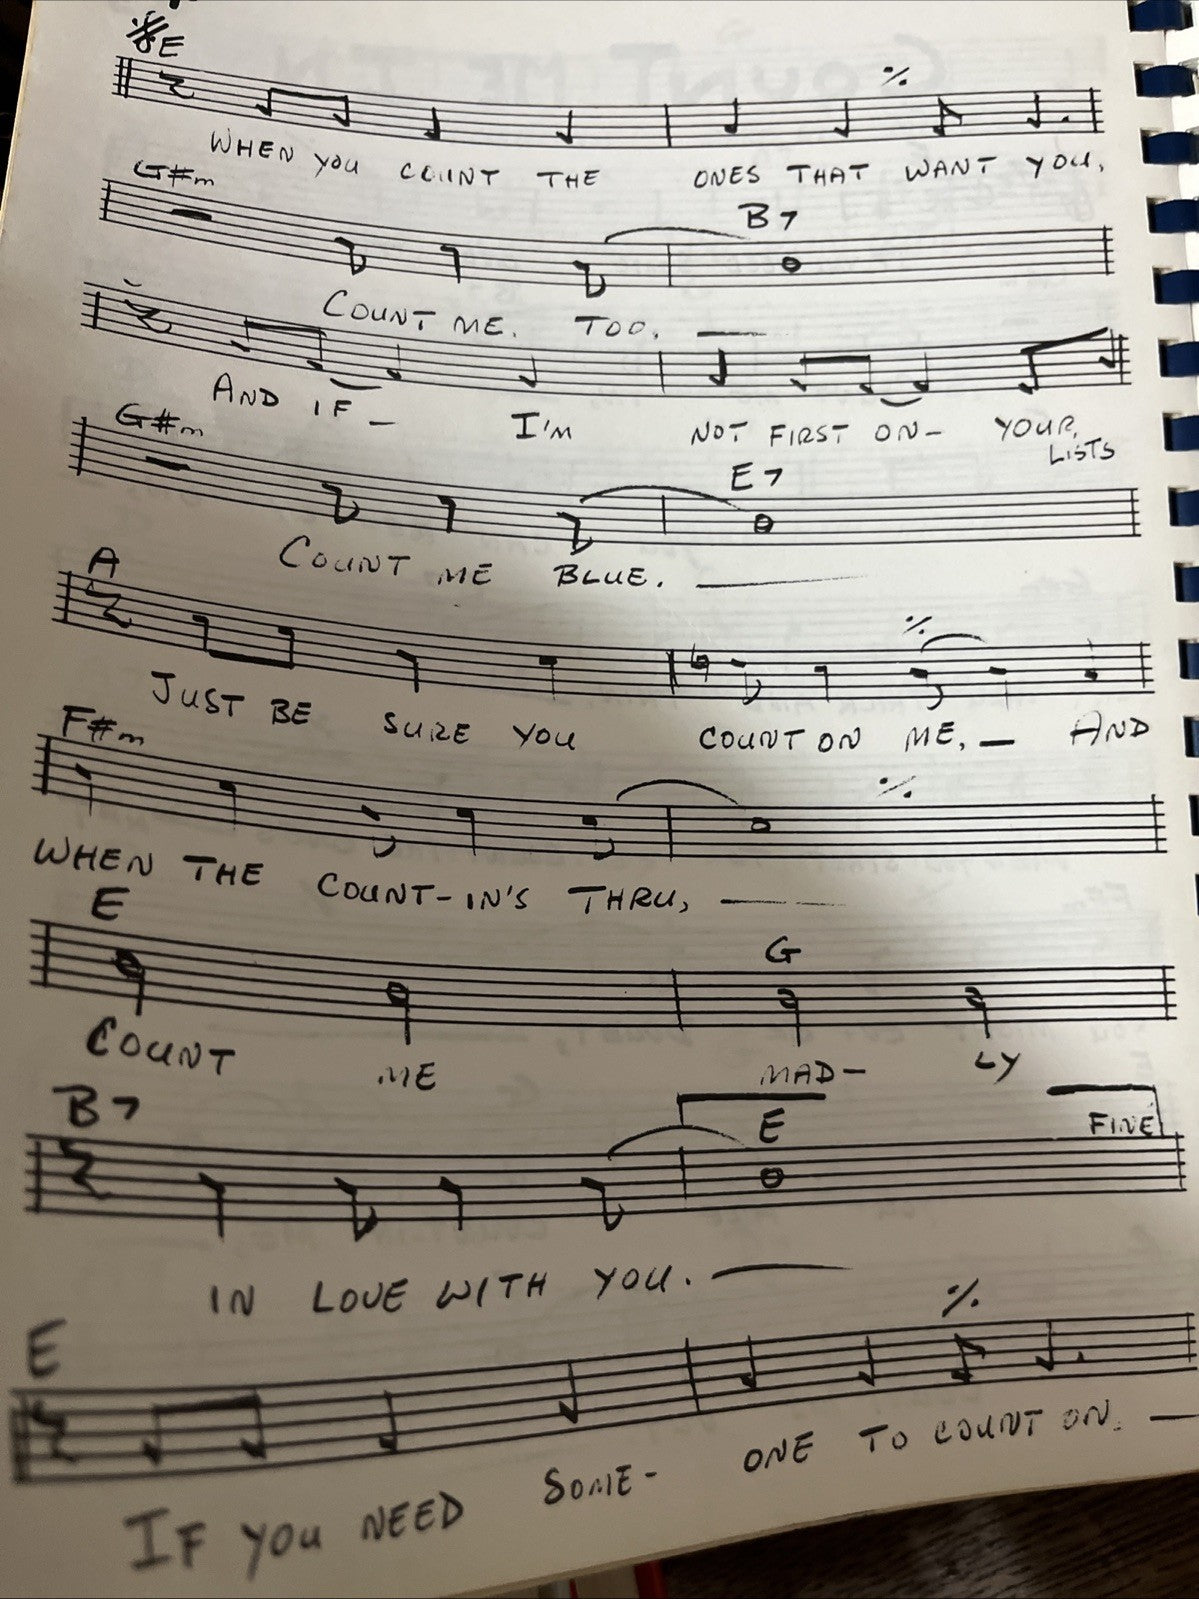 E
WHEN YOU COUNT THE ONES THAT WANT YOU,
G#m B7
COUNT ME. TOO. —
AND IF – I'M NOT FIRST ON– YOUR LISTS
G#m E7
COUNT ME BLUE. —
A
JUST BE SURE YOU COUNT ON ME, — AND
F#m
WHEN THE COUNT-IN'S THRU, —
E G
COUNT ME MAD- LY
B7 E FINE
IN LOVE WITH YOU. —
E
IF YOU NEED SOME- ONE TO COUNT ON. —